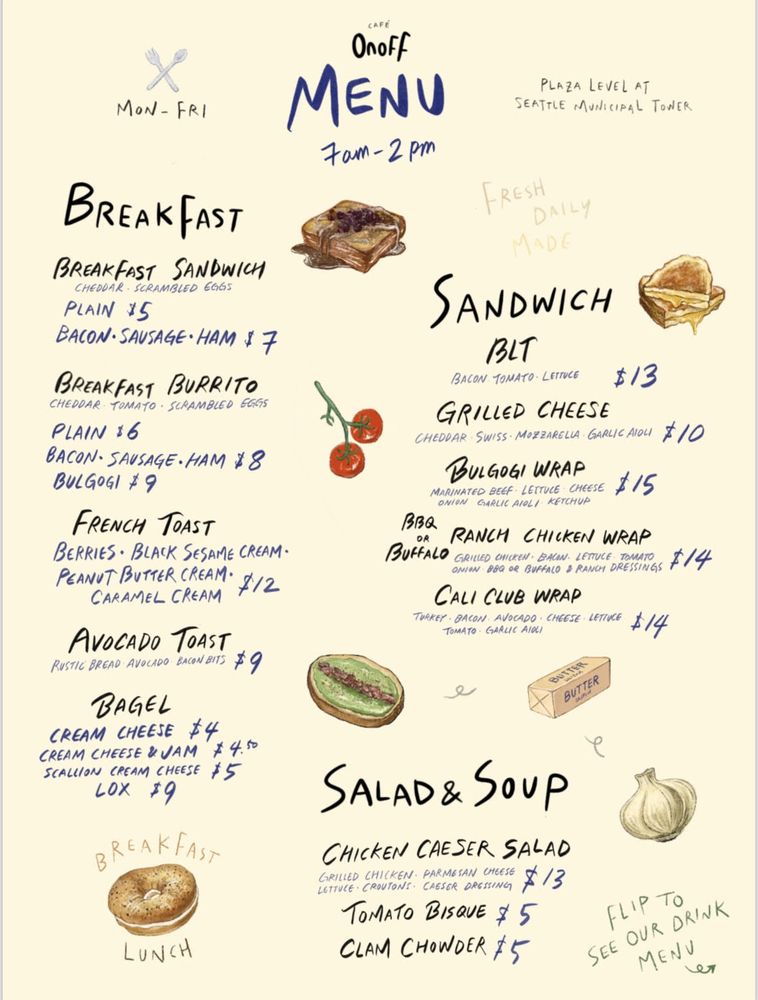 CAFÉ
OnOFF
MENU
7am - 2pm
MON - FRI
PLAZA LEVEL AT
SEATTLE MUNICIPAL TOWER
FRESH
DAILY
MADE
BREAKFAST
BREAKFAST SANDWICH
CHEDDAR · SCRAMBLED EGGS
PLAIN $5
BACON · SAUSAGE · HAM $7
BREAKFAST BURRITO
CHEDDAR · TOMATO · SCRAMBLED EGGS
PLAIN $6
BACON · SAUSAGE · HAM $8
BULGOGI $9
FRENCH TOAST
BERRIES · BLACK SESAME CREAM ·
PEANUT BUTTER CREAM ·
CARAMEL CREAM $12
AVOCADO TOAST
RUSTIC BREAD · AVOCADO BACON BITS $9
BAGEL
CREAM CHEESE $4
CREAM CHEESE & JAM $4.50
SCALLION CREAM CHEESE $5
LOX $9
BREAKFAST
LUNCH
SANDWICH
BLT
BACON TOMATO · LETTUCE $13
GRILLED CHEESE
CHEDDAR · SWISS · MOZZARELLA · GARLIC AIOLI $10
BULGOGI WRAP
MARINATED BEEF · LETTUCE · CHEESE $15
ONION · GARLIC AIOLI · KETCHUP
BBQ
OR
BUFFALO
RANCH CHICKEN WRAP
GRILLED CHICKEN · BACON · LETTUCE · TOMATO $14
ONION · BBQ OR BUFFALO & RANCH DRESSINGS
CALI CLUB WRAP
TURKEY · BACON · AVOCADO · CHEESE · LETTUCE $14
TOMATO · GARLIC AIOLI
BUTTER
BUTTER
SALAD & SOUP
CHICKEN CAESER SALAD
GRILLED CHICKEN · PARMESAN CHEESE $13
LETTUCE · CROUTONS · CAESER DRESSING
TOMATO BISQUE $5
CLAM CHOWDER $5
FLIP TO
SEE OUR DRINK
MENU